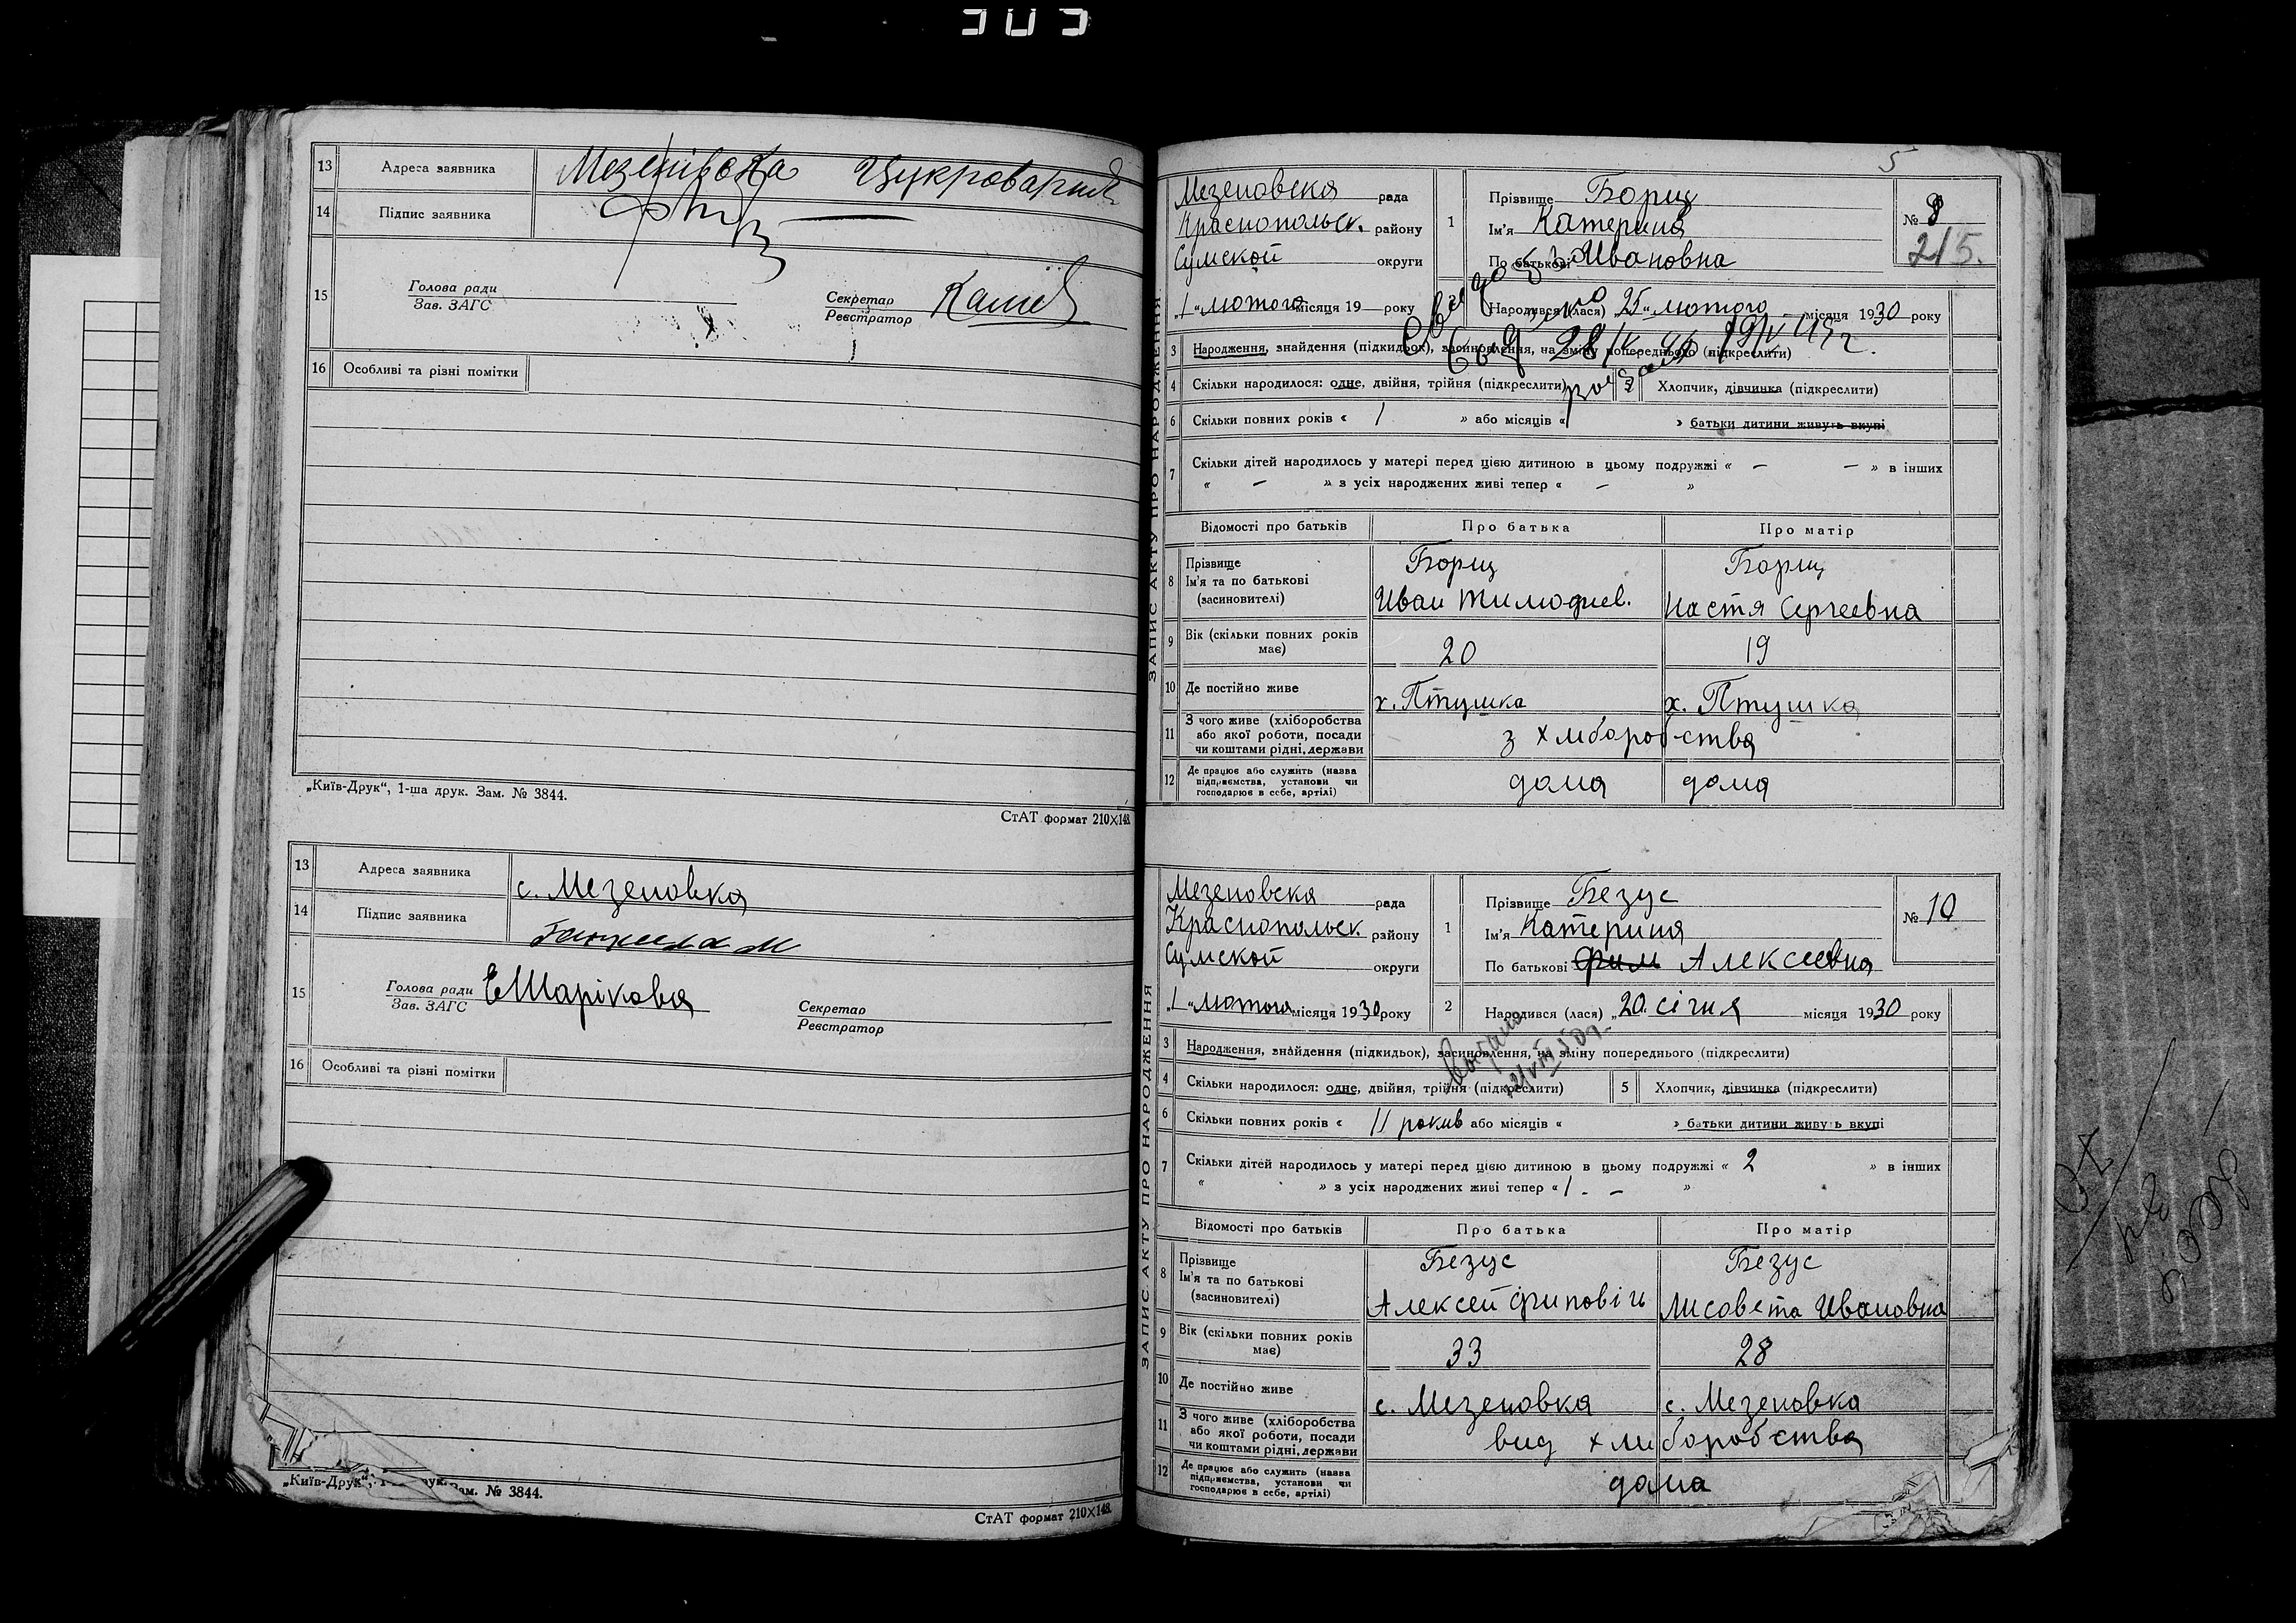 303
13 Адреса заявника Мезенівска Цукроварня
14 Підпис заявника
15 Голова ради
Зав. ЗАГС
Секретар
Реєстратор
16 Особливі та різні помітки
„Київ-Друк“, 1-ша друк. Зам. № 3844.
СтАТ формат 210×148.
13 Адреса заявника с. Мезеновка
14 Підпис заявника
15 Голова ради ЕШарікова
Зав. ЗАГС
Секретар
Реєстратор
16 Особливі та різні помітки
„Київ-Друк“, 1- Зам. № 3844.
СтАТ формат 210×148.
5
ЗАПИС АКТУ ПРО НАРОДЖЕННЯ
Мезеновска рада
Краснопольск. району
Сумской округи
„1“ лютого місяця 19 року
1 Прізвище Борщ
Ім'я Катерина
По батькові Ивановна
№ 8
215.
Народився (лася) 25 „ лютого місяця 1930 року
3 Народження, знайдення (підкидьок), засиновлення, на зміну попереднього (підкреслити)
4 Скільки народилося: одне, двійня, трійня (підкреслити) 5 Хлопчик, дівчинка (підкреслити)
6 Скільки повних років « 1 » або місяців « » батьки дитини живуть вкупі
7 Скільки дітей народилось у матері перед цією дитиною в цьому подружжі « — — » в інших
« — » з усіх народжених живі тепер « — »
Відомості про батьків Про батька Про матір
8 Прізвище Борщ Борщ
Ім'я та по батькові
(засновителі) Иван Тимофиев. Настя Сергеевна
9 Вік (скільки повних років має) 20 19
10 Де постійно живе х. Птушка х. Птушка
11 З чого живе (хліборобства
або якої роботи, посади
чи коштами рідні, держави
з хлиборобства
12 Де працює або служить (назва
підприємства, установи чи
господарює в себе, артілі)
дома дома
ЗАПИС АКТУ ПРО НАРОДЖЕННЯ
Мезеновска рада
Краснопольск району
Сумской округи
„1“ лютого місяця 1930 року
1 Прізвище Безус
Ім'я Катериня
По батькові Фим Алексеевна
№ 10
2 Народився (лася) „20. січня місяця 1930 року
3 Народження, знайдення (підкидьок), засиновлення, на зміну попереднього (підкреслити)
4 Скільки народилося: одне, двійня, трійня (підкреслити) 5 Хлопчик, дівчинка (підкреслити)
6 Скільки повних років « 11 рокив або місяців « » батьки дитини живуть вкупі
7 Скільки дітей народилось у матері перед цією дитиною в цьому подружжі « 2 » в інших
« » з усіх народжених живі тепер « 1 . — »
Відомості про батьків Про батька Про матір
8 Прізвище Безус Безус
Ім'я та по батькові
(засновителі) Алексей Лисовета Ивановна
9 Вік (скільки повних років має) 33 28
10 Де постійно живе с. Мезеновка с. Мезеновка
11 З чого живе (хліборобства
або якої роботи, посади
чи коштами рідні, держави
вид хлиборобства
12 Де працює або служить (назва
підприємства, установи чи
господарює в себе, артілі)
дома